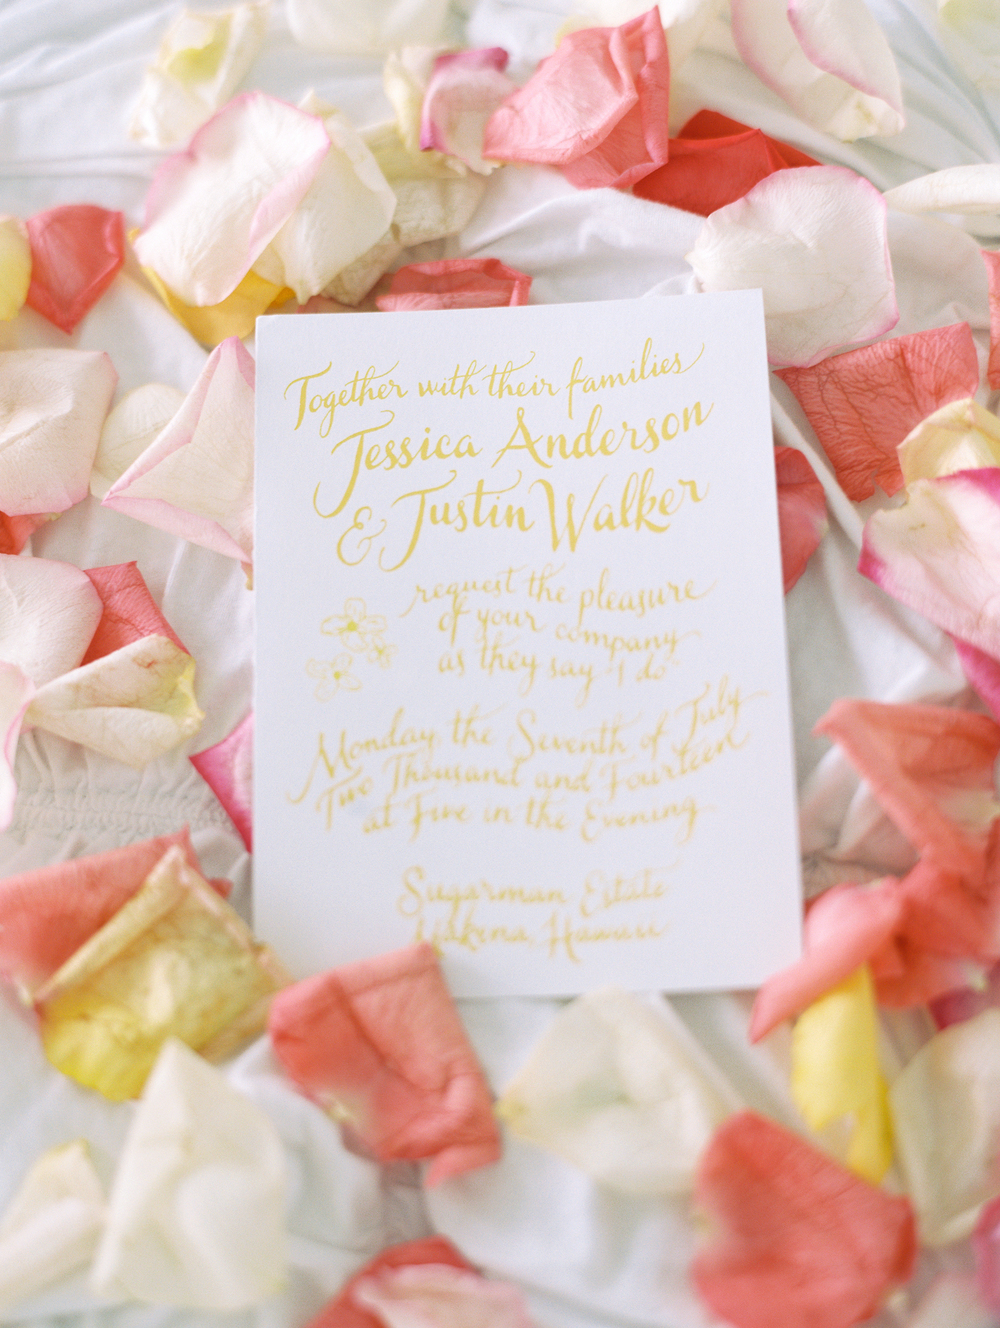 Together with their families
Jessica Anderson
& Justin Walker
request the pleasure
of your company
as they say "I do"
Monday, the Seventh of July
Two Thousand and Fourteen
at Five in the Evening
Sugarman Estate
Makena, Hawaii